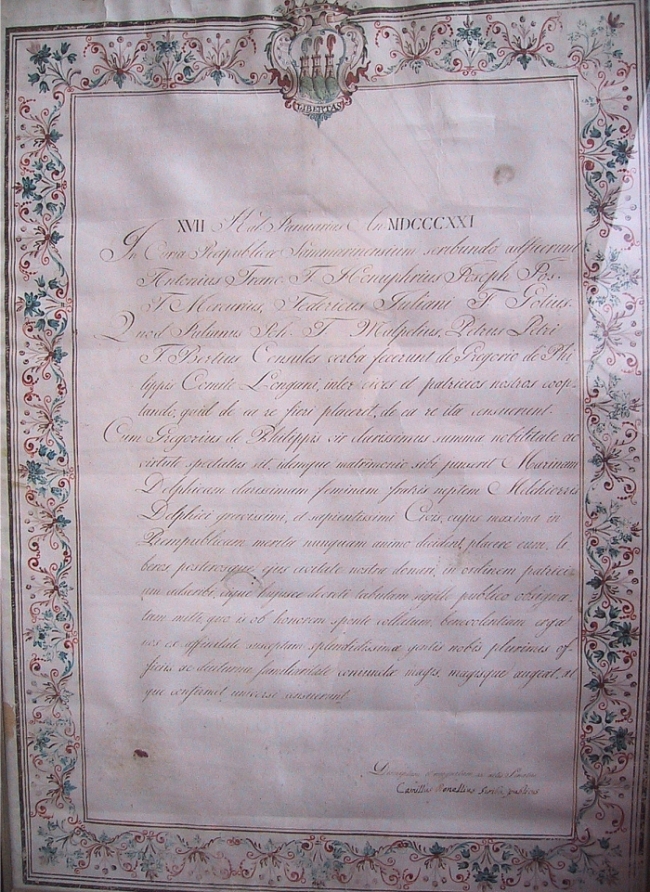 LIBERTAS
XVII Kal. Ianuarias An. MDCCCXXI
In Curia Reipublicae Sammarinensium scribundo adfuerunt
Antonius Franc. F. Honuphrius Ioseph Ios.
F. Mercurius, Federicus Iuliani F. Gozius.
Quod Iulianus F. Malpelius, Petrus Petri
F. Bertius Consules verba fecerunt de Gregorio de Phi
lippis Comite Longani, inter cives et patricios nostros coop
tando, quid de ea re fieri placeret, de ea re ita censuerunt.
Cum Gregorius de Philippis vir clarissimus summa nobilitate ac
virtute spectatus sit, idemque matrimonio sibi junxerit Marinam
Delphicam clarissimam feminam fratris neptem Melchiorris
Delphici gravissimi, et sapientissimi Civis, cujus maxima in
Rempublicam merita nunquam animo excidant, placere eum, li
beros posterosque ejus civitate nostra donari, in ordinem patrici
um adscribi, eique hujusce decreti tabulam sigillo publico obsigna
tam mitti, quo is ob honorem sponte collatum, benevolentiam erga
nos ex affinitate susceptam splendidissimae gentis nobis plurimis of
ficiis ac diuturna familiaritate conjunctae magis, magisque augeat, at
que confirmet, universi censuerunt.
Camillus Bonellius Scriba publicus